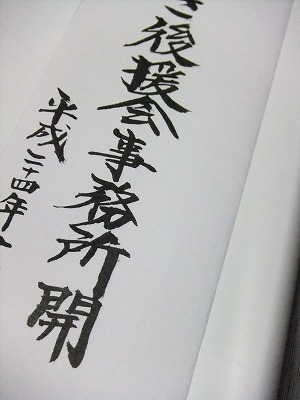 き後援会事務所開
平成二十四年